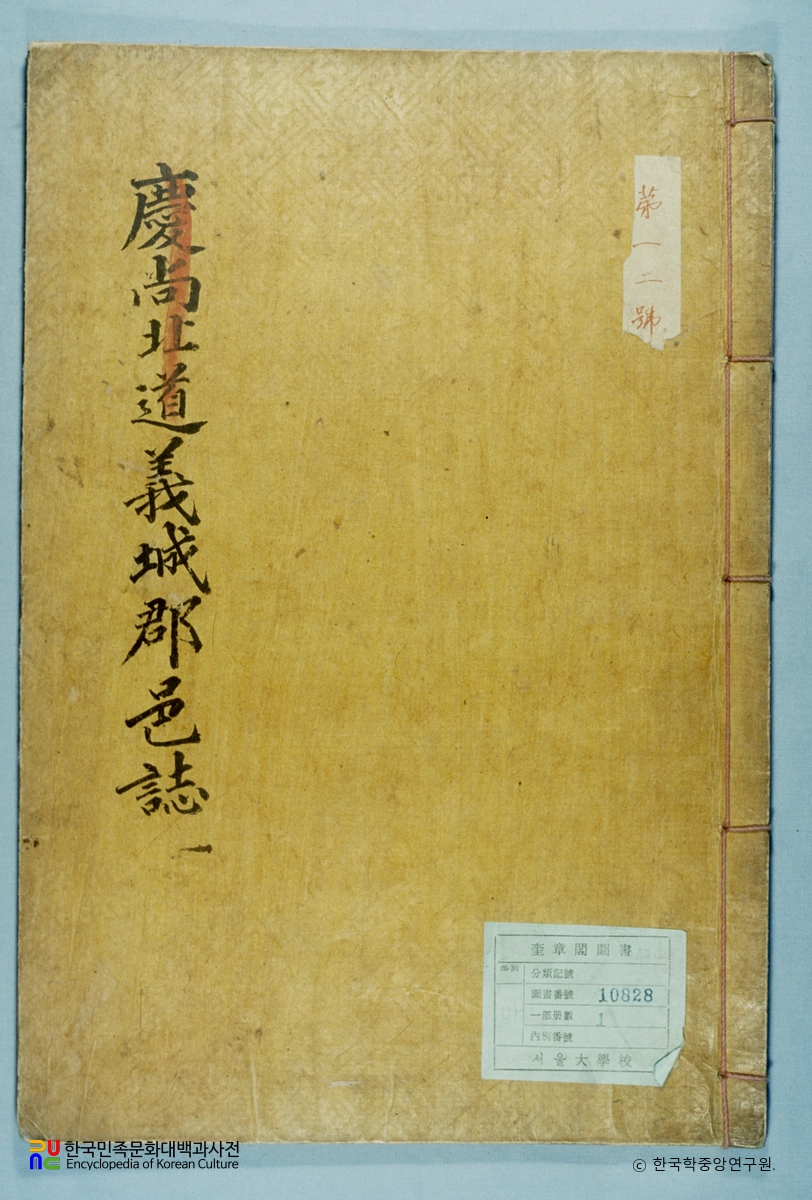 第一二號
慶尙北道義城郡邑誌 一
奎章閣圖書
分類記號
圖書番號 10828
一部册數 1
內別番號
서울大學校
한국민족문화대백과사전
Encyclopedia of Korean Culture
ⓒ 한국학중앙연구원.